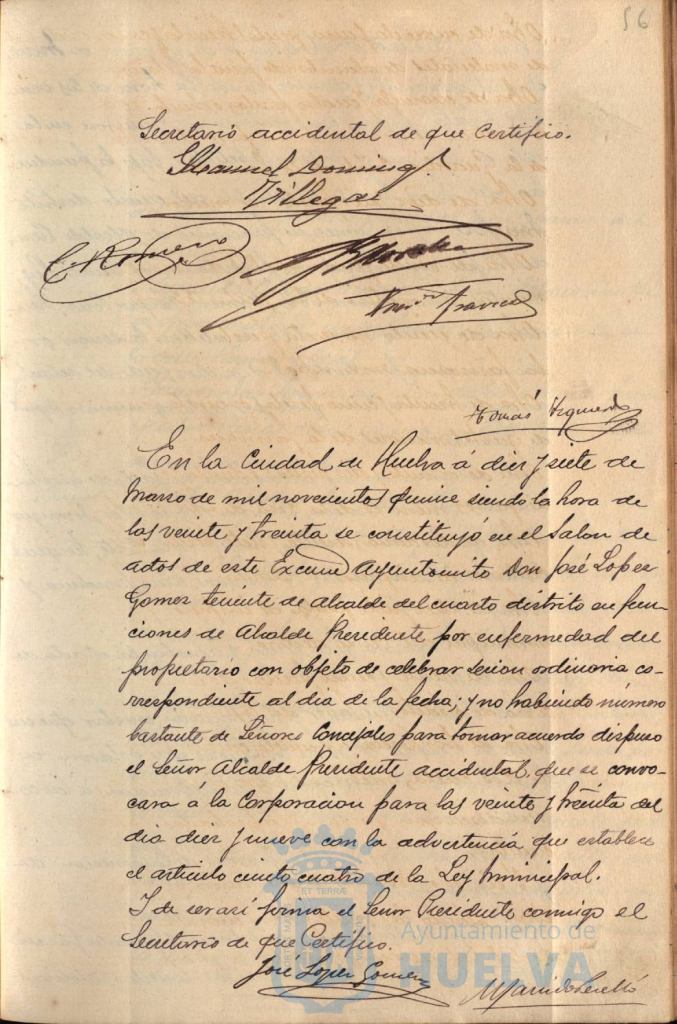 56
Secretario accidental de que Certifico.
Manuel Doming.
Villegas
C. Romero
Tomás Izquierdo
En la Ciudad de Huelva á diez y siete de
Marzo de mil novecientos quince siendo la hora de
las veinte y treinta se constituyó en el Salon de
actos de este Excmo Ayuntamito Don José Lopez
Gomez teniente de alcalde del cuarto distrito en fun-
ciones de Alcalde Presidente por enfermedad del
propietario con objeto de celebrar sesion ordinaria co-
rrespondiente al dia de la fecha; y no habiendo número
bastante de Señores Concejales para tomar acuerdo dispuso
el Señor Alcalde Presidente accidental, que se convo-
cara á la Corporacion para las veinte y treinta del
dia diez y nueve con la advertencia que establece
el articulo ciento cuatro de la Ley Municipal.
I de ser así firma el Señor Presidente conmigo el
Secretario de que Certifico.
José Lopez Gomez
Ayuntamiento de
HUELVA